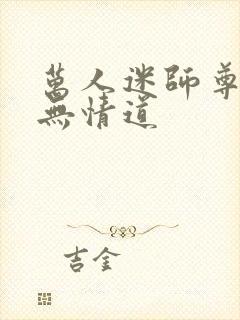 萬人迷師尊
無情道
吉金